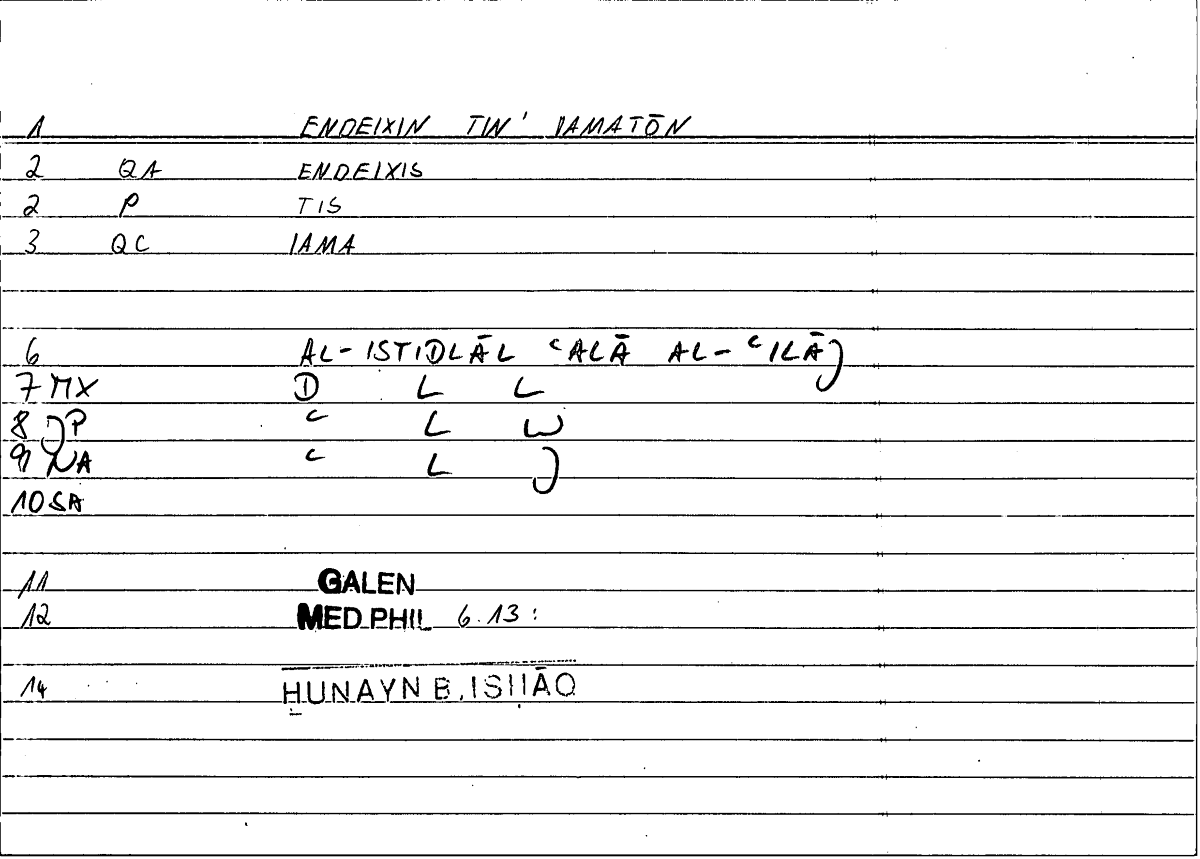 1 ENDEIXIN TIN' IAMATŌN
2 QA ENDEIXIS
2 P TIS
3 QC IAMA
6 AL-ISTIDLĀL ʿALĀ AL-ʿILĀJ
7 MX D L L
8 JP ʿ L W
9 NA ʿ L J
10 SA
11 GALEN
12 MED PHIL 6.13:
14 ḤUNAYN B. ISḤĀQ